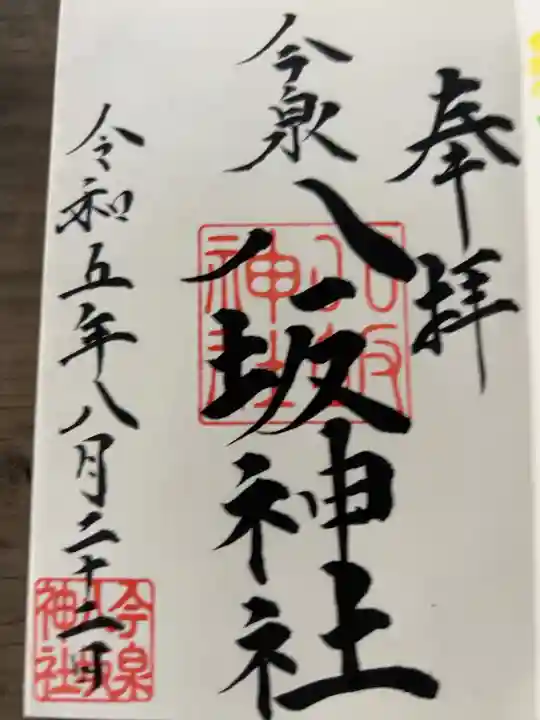 奉拝
今泉八坂神社
八坂神社
令和五年八月二十二日
今泉
八坂
神社